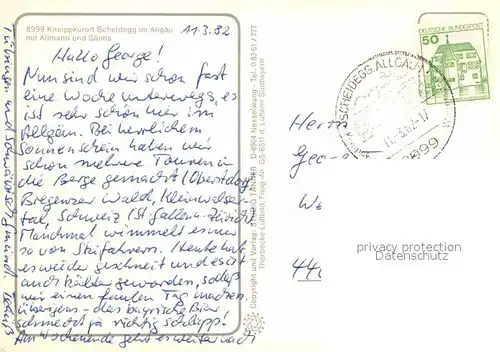 8999 Kneippkurort Scheidegg im Allgäu
mit Altmann und Säntis
11.3.82
Hallo George!
Nun sind wir schon fast
eine Woche unterwegs, es
ist sehr schön hier im
Allgäu. Bei herrlichem
Sonnenschein haben wir
schon mehrere Touren in
die Berge gemacht (Oberstdorf,
Bregenzer Wald, Kleinwalser-
tal, Schweiz (St. Gallen - Zürich)
Manchmal wimmelt es nur
so von Skifahrern. Heute hat
es wieder geschneit und es ist
auch kälter geworden, sodaß
wir einen faulen Tag machen.
Übrigens - das bayrische Bier
schmeckt ja richtig schlapp!
Am Wochenende geht es weiter nach
Tübingen und Schwäbisch Gmünd.
Copyright und Verlag: STUDIO TANNER D-8964 Nesselwang - Tel. 0 83 61 / 777
Thorbecke-Luftbild, Freig.-Nr.
DEUTSCHE BUNDESPOST
50
SCHEIDEGG, ALLGÄU
11.3.82-17
8999
Herrn
Geor
We
privacy protection
Datenschutz
44